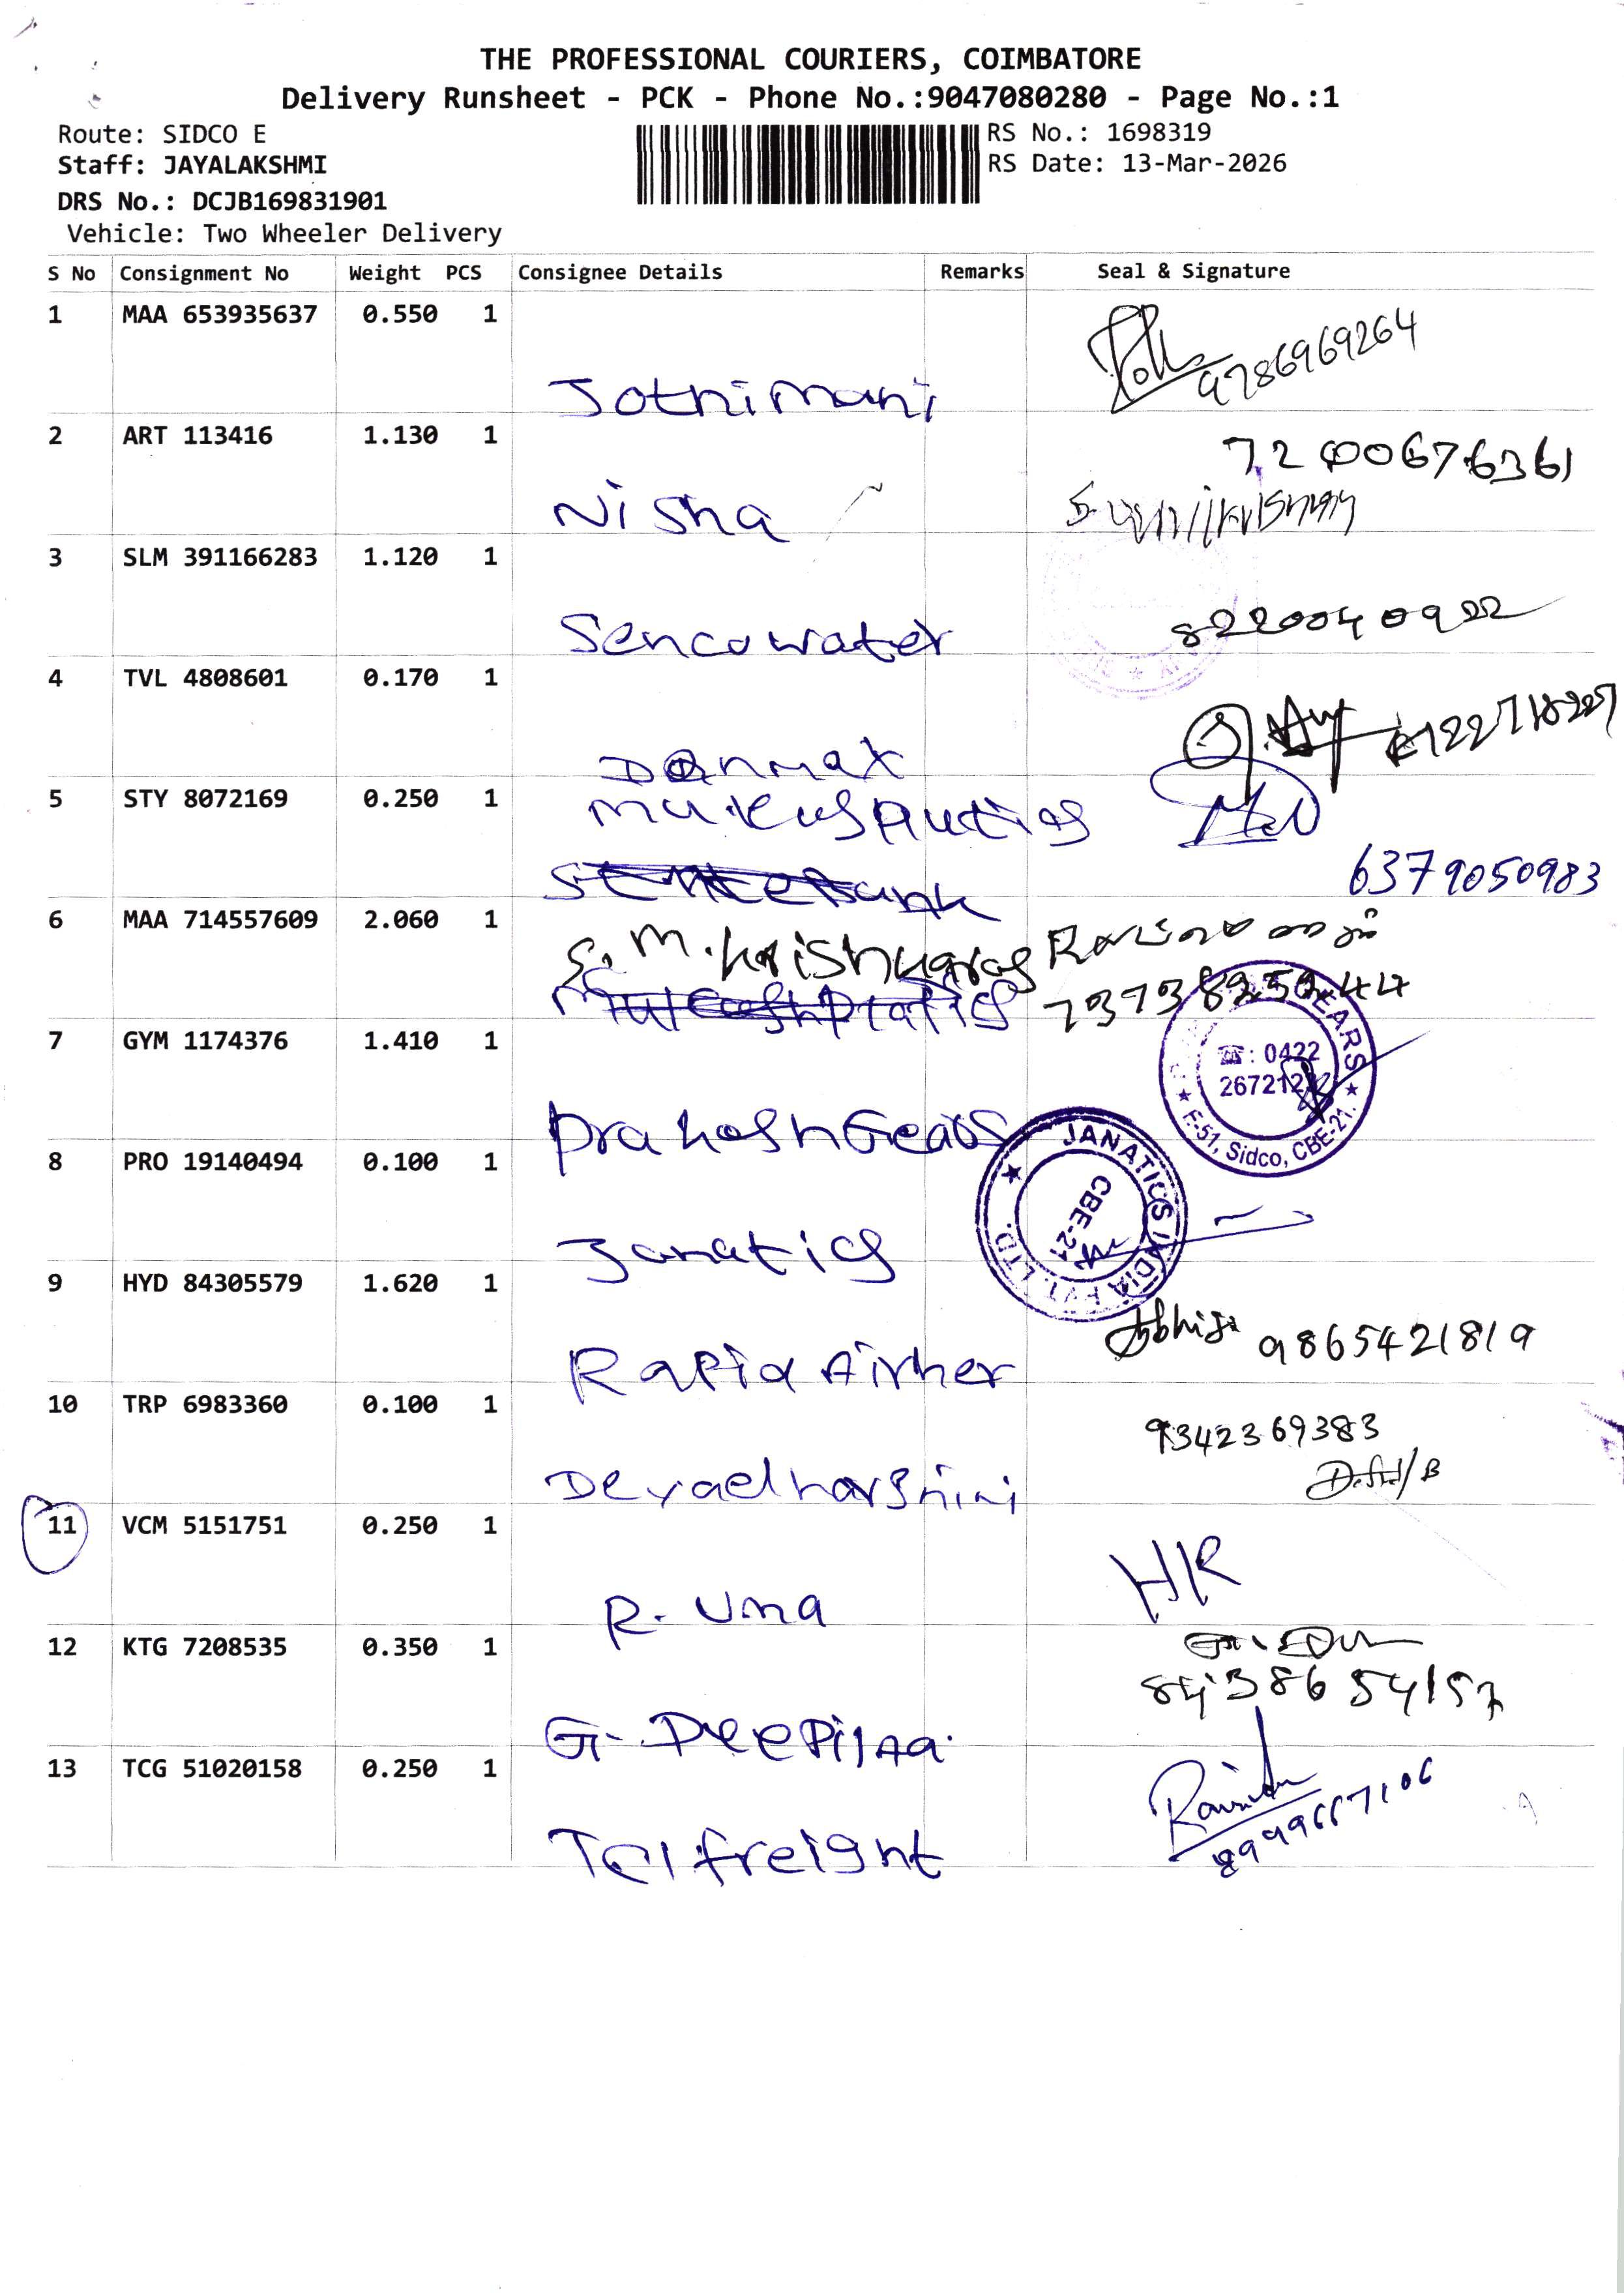 THE PROFESSIONAL COURIERS, COIMBATORE
Delivery Runsheet - PCK - Phone No.:9047080280 - Page No.:1
Route: SIDCO E
Staff: JAYALAKSHMI
DRS No.: DCJB169831901
Vehicle: Two Wheeler Delivery
RS No.: 1698319
RS Date: 13-Mar-2026
S No Consignment No Weight PCS Consignee Details Remarks Seal & Signature
1 MAA 653935637 0.550 1
Jothimani 9786969264
2 ART 113416 1.130 1
7200676361
Nisha
3 SLM 391166283 1.120 1
Sencowater 8220040922
4 TVL 4808601 0.170 1
Danmax
5 STY 8072169 0.250 1
6379050983
6 MAA 714557609 2.060 1
S.M.Krishnaraj
7373825244
7 GYM 1174376 1.410 1
EARS
☎: 0422
F-51, Sidco, CBE-21.
PrakashGears
8 PRO 19140494 0.100 1
JANATICS INDIA PVT. LTD.
CBE-21
Janatics
9 HYD 84305579 1.620 1
9865421819
Rapid Airher
10 TRP 6983360 0.100 1
9342369383
11 VCM 5151751 0.250 1
HR
R. Uma
12 KTG 7208535 0.350 1
8438654157
13 TCG 51020158 0.250 1
TCI freight